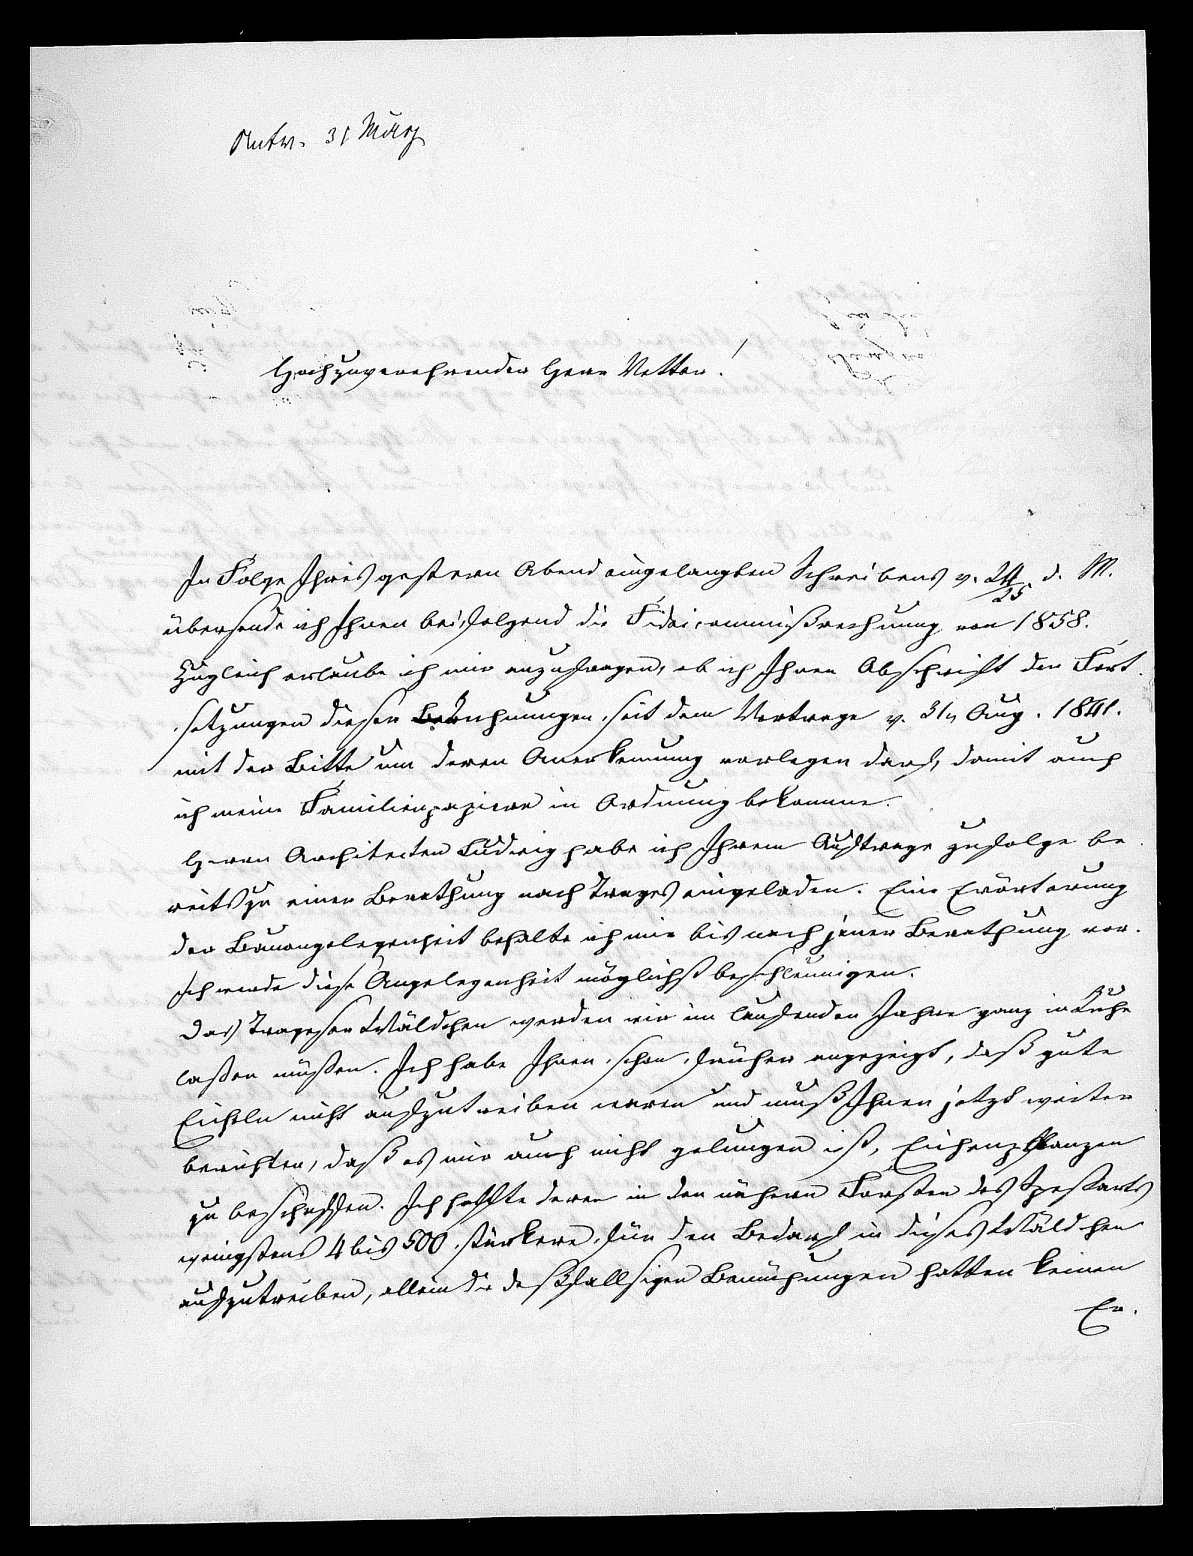 Antw. 31 März
Hochzuverehrender Herr Vetter!
In Folge Ihres gestern Abend eingelangten Schreibens v. 24/25. d. M.
übersende ich Ihnen beifolgend die Fideicommißrechnung von 1858.
Zugleich erlaube ich mir anzufragen, ob ich Ihnen Abschrift der Fort-
setzungen dieser Berechnungen seit dem Vertrage v. 31n Aug. 1841.
mit der Bitte um deren Anerkennung vorlegen darf, damit auch
ich meine Familienpapiere in Ordnung bekomme.
Herrn Architecten Ludwig habe ich Ihrem Auftrage zufolge be-
reits zu einer Berathung nach Trages eingeladen. Eine Erörterung
der Bauangelegenheit behalte ich mir bis nach jener Berathung vor.
Ich werde diese Angelegenheit möglichst beschleunigen.
Das Trageser Wäldchen werden wir im laufenden Jahre ganz in Ruhe
laßen müßen. Ich habe Ihnen schon früher angezeigt, daß gute
Eicheln nicht aufzutreiben waren und muß Ihnen jetzt weiter
berichten, daß es mir auch nicht gelungen ist, Eichenpflanzen
zu beschaffen. Ich hoffte deren in den nähern Forsten des Spessarts
wenigstens 4 bis 500 stärkere für den Bedarf in dieses Wäldchen
aufzutreiben, allein die deßfallsigen Bemühungen hatten keinen
Er-